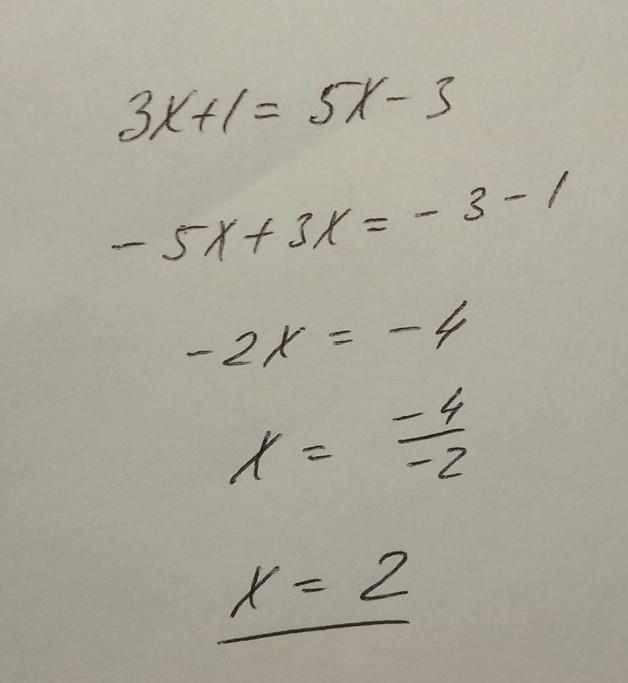 3x+1 = 5x - 3
- 5x + 3x = - 3 - 1
-2x = - 4
x = -4/-2
x = 2